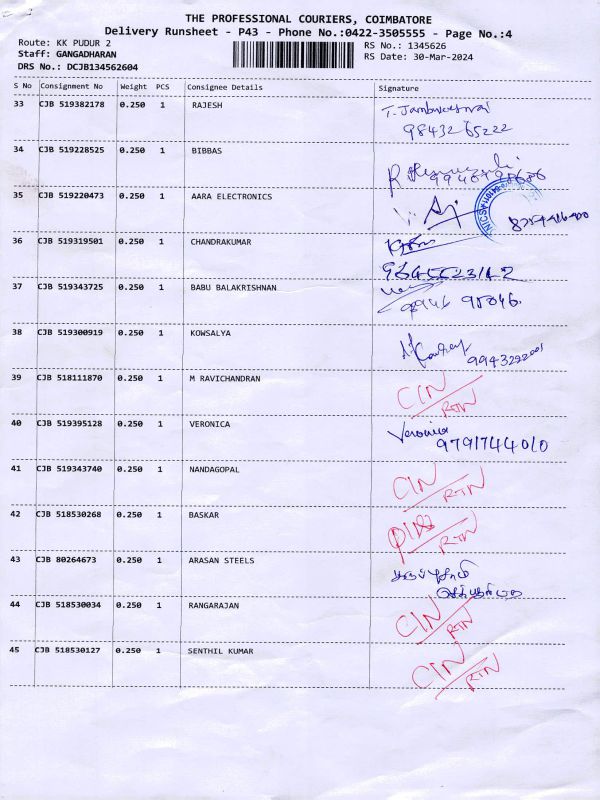 THE PROFESSIONAL COURIERS, COIMBATORE
Delivery Runsheet - P43 - Phone No.:0422-3505555 - Page No.:4
Route: KK PUDUR 2
Staff: GANGADHARAN
DRS No.: DCJB134562604
RS No.: 1345626
RS Date: 30-Mar-2024
S No Consignment No Weight PCS Consignee Details Signature
33 CJB 519382178 0.250 1 RAJESH
98432 65222
34 CJB 519228525 0.250 1 BIBBAS
35 CJB 519220473 0.250 1 AARA ELECTRONICS
36 CJB 519319501 0.250 1 CHANDRAKUMAR
37 CJB 519343725 0.250 1 BABU BALAKRISHNAN
38 CJB 519300919 0.250 1 KOWSALYA
39 CJB 518111870 0.250 1 M RAVICHANDRAN CIN
RTN
40 CJB 519395128 0.250 1 VERONICA Veronica
9791744010
41 CJB 519343740 0.250 1 NANDAGOPAL CIN
RTN
42 CJB 518530268 0.250 1 BASKAR
RTN
43 CJB 80264673 0.250 1 ARASAN STEELS
44 CJB 518530034 0.250 1 RANGARAJAN CIN
RTN
45 CJB 518530127 0.250 1 SENTHIL KUMAR CIN
RTN